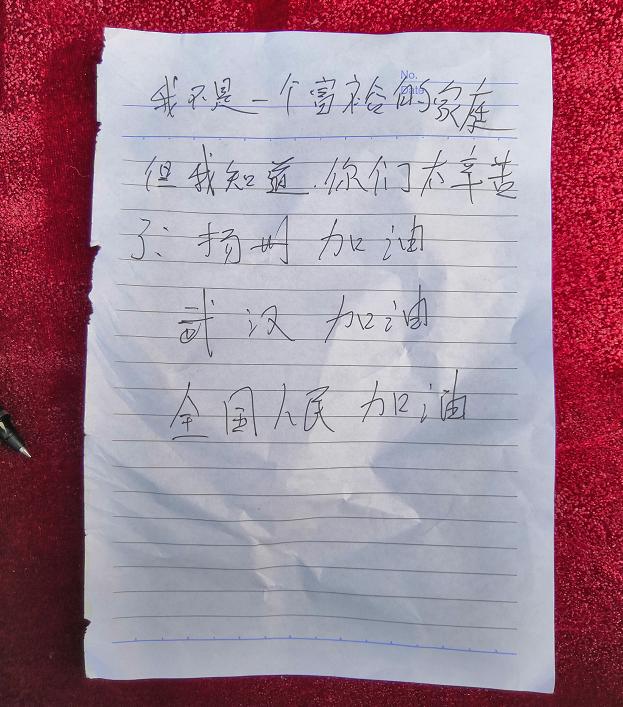 No.
Date
我不是一个富裕的家庭
但我知道.你们太辛苦
了: 扬州 加油
武汉 加油
全国人民 加油